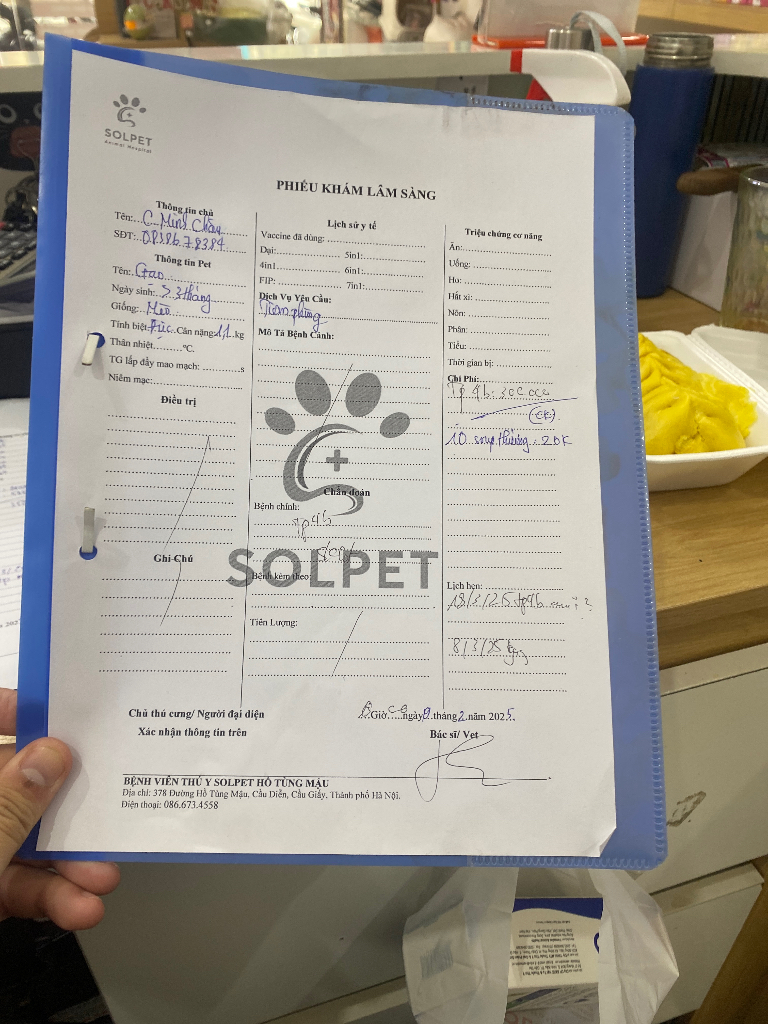 SOLPET
Animal Hospital
PHIẾU KHÁM LÂM SÀNG
Thông tin chủ
Tên: C Minh Châu
SĐT: 0838678384
Thông tin Pet
Tên: Gạo
Ngày sinh: > 3 tháng
Giống: Mèo
Tính biệt: Đực Cân nặng: 1,1 kg
Thân nhiệt..........°C.
TG lấp đầy mao mạch: ..........s
Niêm mạc:
Điều trị
Ghi Chú
Lịch sử y tế
Vaccine đã dùng:
Dại: 5in1:
4in1 6in1:
FIP: 7in1:
Dịch Vụ Yêu Cầu:
Tiêm phòng
Mô Tả Bệnh Cảnh:
Chẩn đoán
Bệnh chính:
Tp4b
SOLPET
Bệnh kèm theo
Tiên Lượng:
Triệu chứng cơ năng
Ăn:
Uống:
Ho:
Hắt xì:
Nôn:
Phân:
Tiểu:
Thời gian bị:
Chi Phí:
Tp 4b: 300 000
(CK)
10 súp thưởng: 20K
Lịch hẹn:
18/3/25 tp4b
8/3/25
Giờ ngày 9 tháng 2 năm 2025.
Chủ thú cưng/ Người đại diện
Xác nhận thông tin trên
Bác sĩ/ Vet
BỆNH VIỆN THÚ Y SOLPET HỒ TÙNG MẬU
Địa chỉ: 378 Đường Hồ Tùng Mậu, Cầu Diễn, Cầu Giấy, Thành phố Hà Nội.
Điện thoại: 086.673.4558